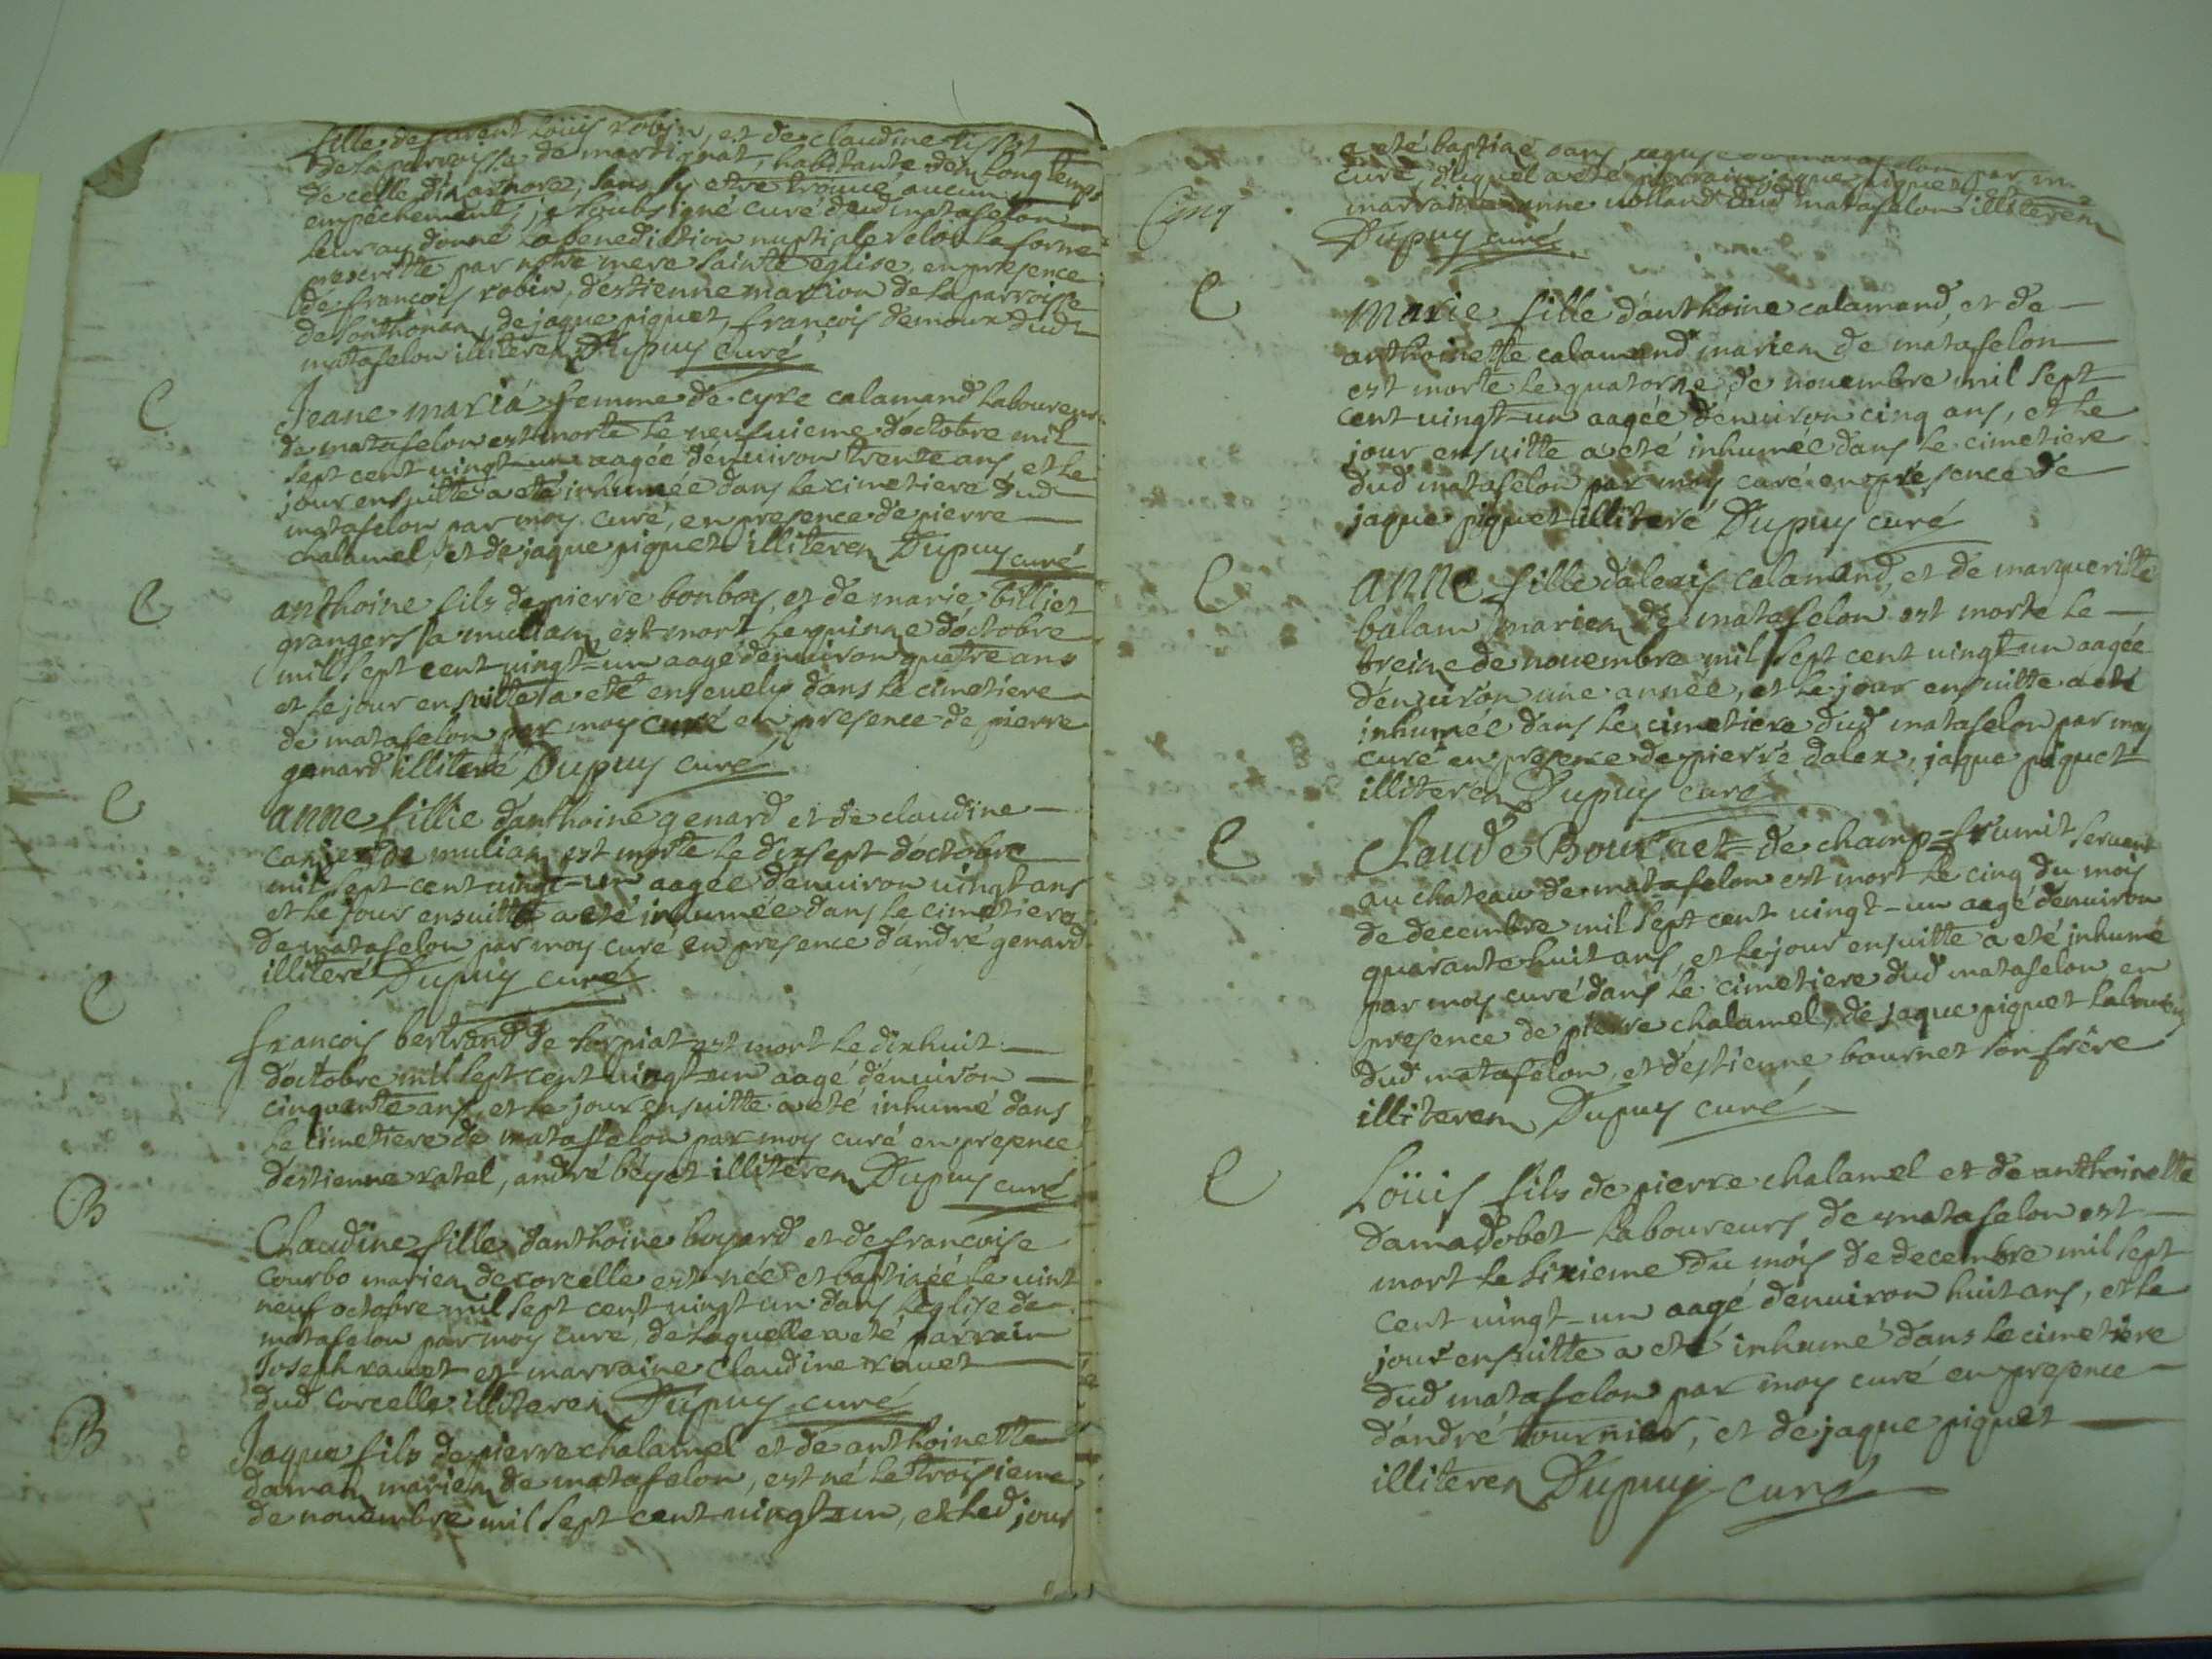 fille de favent Loüis robin, et de claudine tissot
de la parroisse de martignat, habitante de long temps
de celle disarnore, sans sy etre trouue aucun
empéchement, je soubsigné curé dud matafelon
leur ay donné la benediction nuptiale selon la forme
prescritte par notre mere sainte eglise, en presence
de françois robin, destienne marion de la parroisse
de sonthonan, de jaque piquet, françois demoux dud
matafelon illiteren Dupuy curé
C
Jeane maria femme de cyre calamand laboureur
de matafelon est morte le neufuieme doctobre mil
sept cent uingt-un aagée denuiron trente ans, et le
jour ensuitte a eté inhumée dans le cimetiere dud
matafelon par moy curé, en presence de pierre
chalamel, et de jaque piquet illiteren Dupuy curé
C
anthoine fils de pierre bonboy, et de marie billiet
grangers a mulian est mort le quinze doctobre
mill sept cent uingt-un aagé denuiron quatre ans
et le jour ensuitte a eté enseuely dans le cimetiere
de matafelon par moy curé en presence de pierre
genard illiteré Dupuy curé
C
anne fillie danthoine genard et de claudine
carier de mulian est morte le dixsept doctobre
mil sept cent uingt-un aagée denuiron uingt ans
et le jour ensuitte a eté inhumée dans le cimetiere
de matafelon par moy curé en presence dandré genard
illiteré Dupuy curé
C
francois bertrand de sorpiat est mort le dixhuit
doctobre mil sept cent uingt-un aagé denuiron
cinquante ans, et le jour ensuitte a eté inhumé dans
le cimetiere de matafelon par moy curé en presence
destienne ratel, andré béyet illiteren Dupuy curé
B
Claudine fille danthoine boyard et de francoise
courbo marien de corcelle est née et baptizéé le uint
neuf octobre mil sept cent uingt un dans leglise de
matafelon par moy curé, de laquelle a eté parrain
Joseph rauet et marraine Claudine rauet
dud corcelle illiteren Dupuy curé
B
Jaque fils de pierre chalamel et de anthoinette
daman marien de matafelon, est né le troisieme
de nouembre mil sept cent uingt-un, et led jour
a eté baptizé dans leglise de matafelon par m
curé, duquel a eté parrain jaque piquet
Cinq
marraine anne uolland dud matafelon illiteren
Dupuy curé
C
Marie fille danthoine calamand, et de
anthoinette calamand marien de matafelon
est morte le quatorze de nouembre mil sept
cent uingt-un aagée denuiron cinq ans, et le
jour ensuitte a eté inhumée dans le cimetiere
dud matafelon par moy curé en presence de
jaque piquet illiteré Dupuy curé
C
anne fille dalexis calamand, et de margueritte
balam marien de matafelon est morte le
treize de nouembre mil sept cent uingt-un aagée
denuiron une année, et le jour ensuitte a eté
inhumée dans le cimetiere dud matafelon par moy
curé en presence de pierre dalex, jaque piquet
illiteren Dupuy curé
C
Claude Bournet de champ=frumit seruent
au chateau de matafelon est mort le cinq du mois
de decembre mil sept cent uingt-un aagé denuiron
quarante huit ans, et le jour ensuitte a eté inhumé
par moy curé dans le cimetiere dud matafelon en
presence de pierre chalamel, de jaque piquet laboureurs
dud matafelon, et destienne bournet son frère
illiteren Dupuy curé
C
Loüis fils de pierre chalamel et de anthoinette
damadobet laboureurs de matafelon est
mort le sixieme du mois de decembre mil sept
cent uingt-un aagé denuiron huit ans, et le
jour ensuitte a eté inhumé dans le cimetiere
dud matafelon par moy curé en presence
dandré tournier, et de jaque piquet
illiteren Dupuy curé